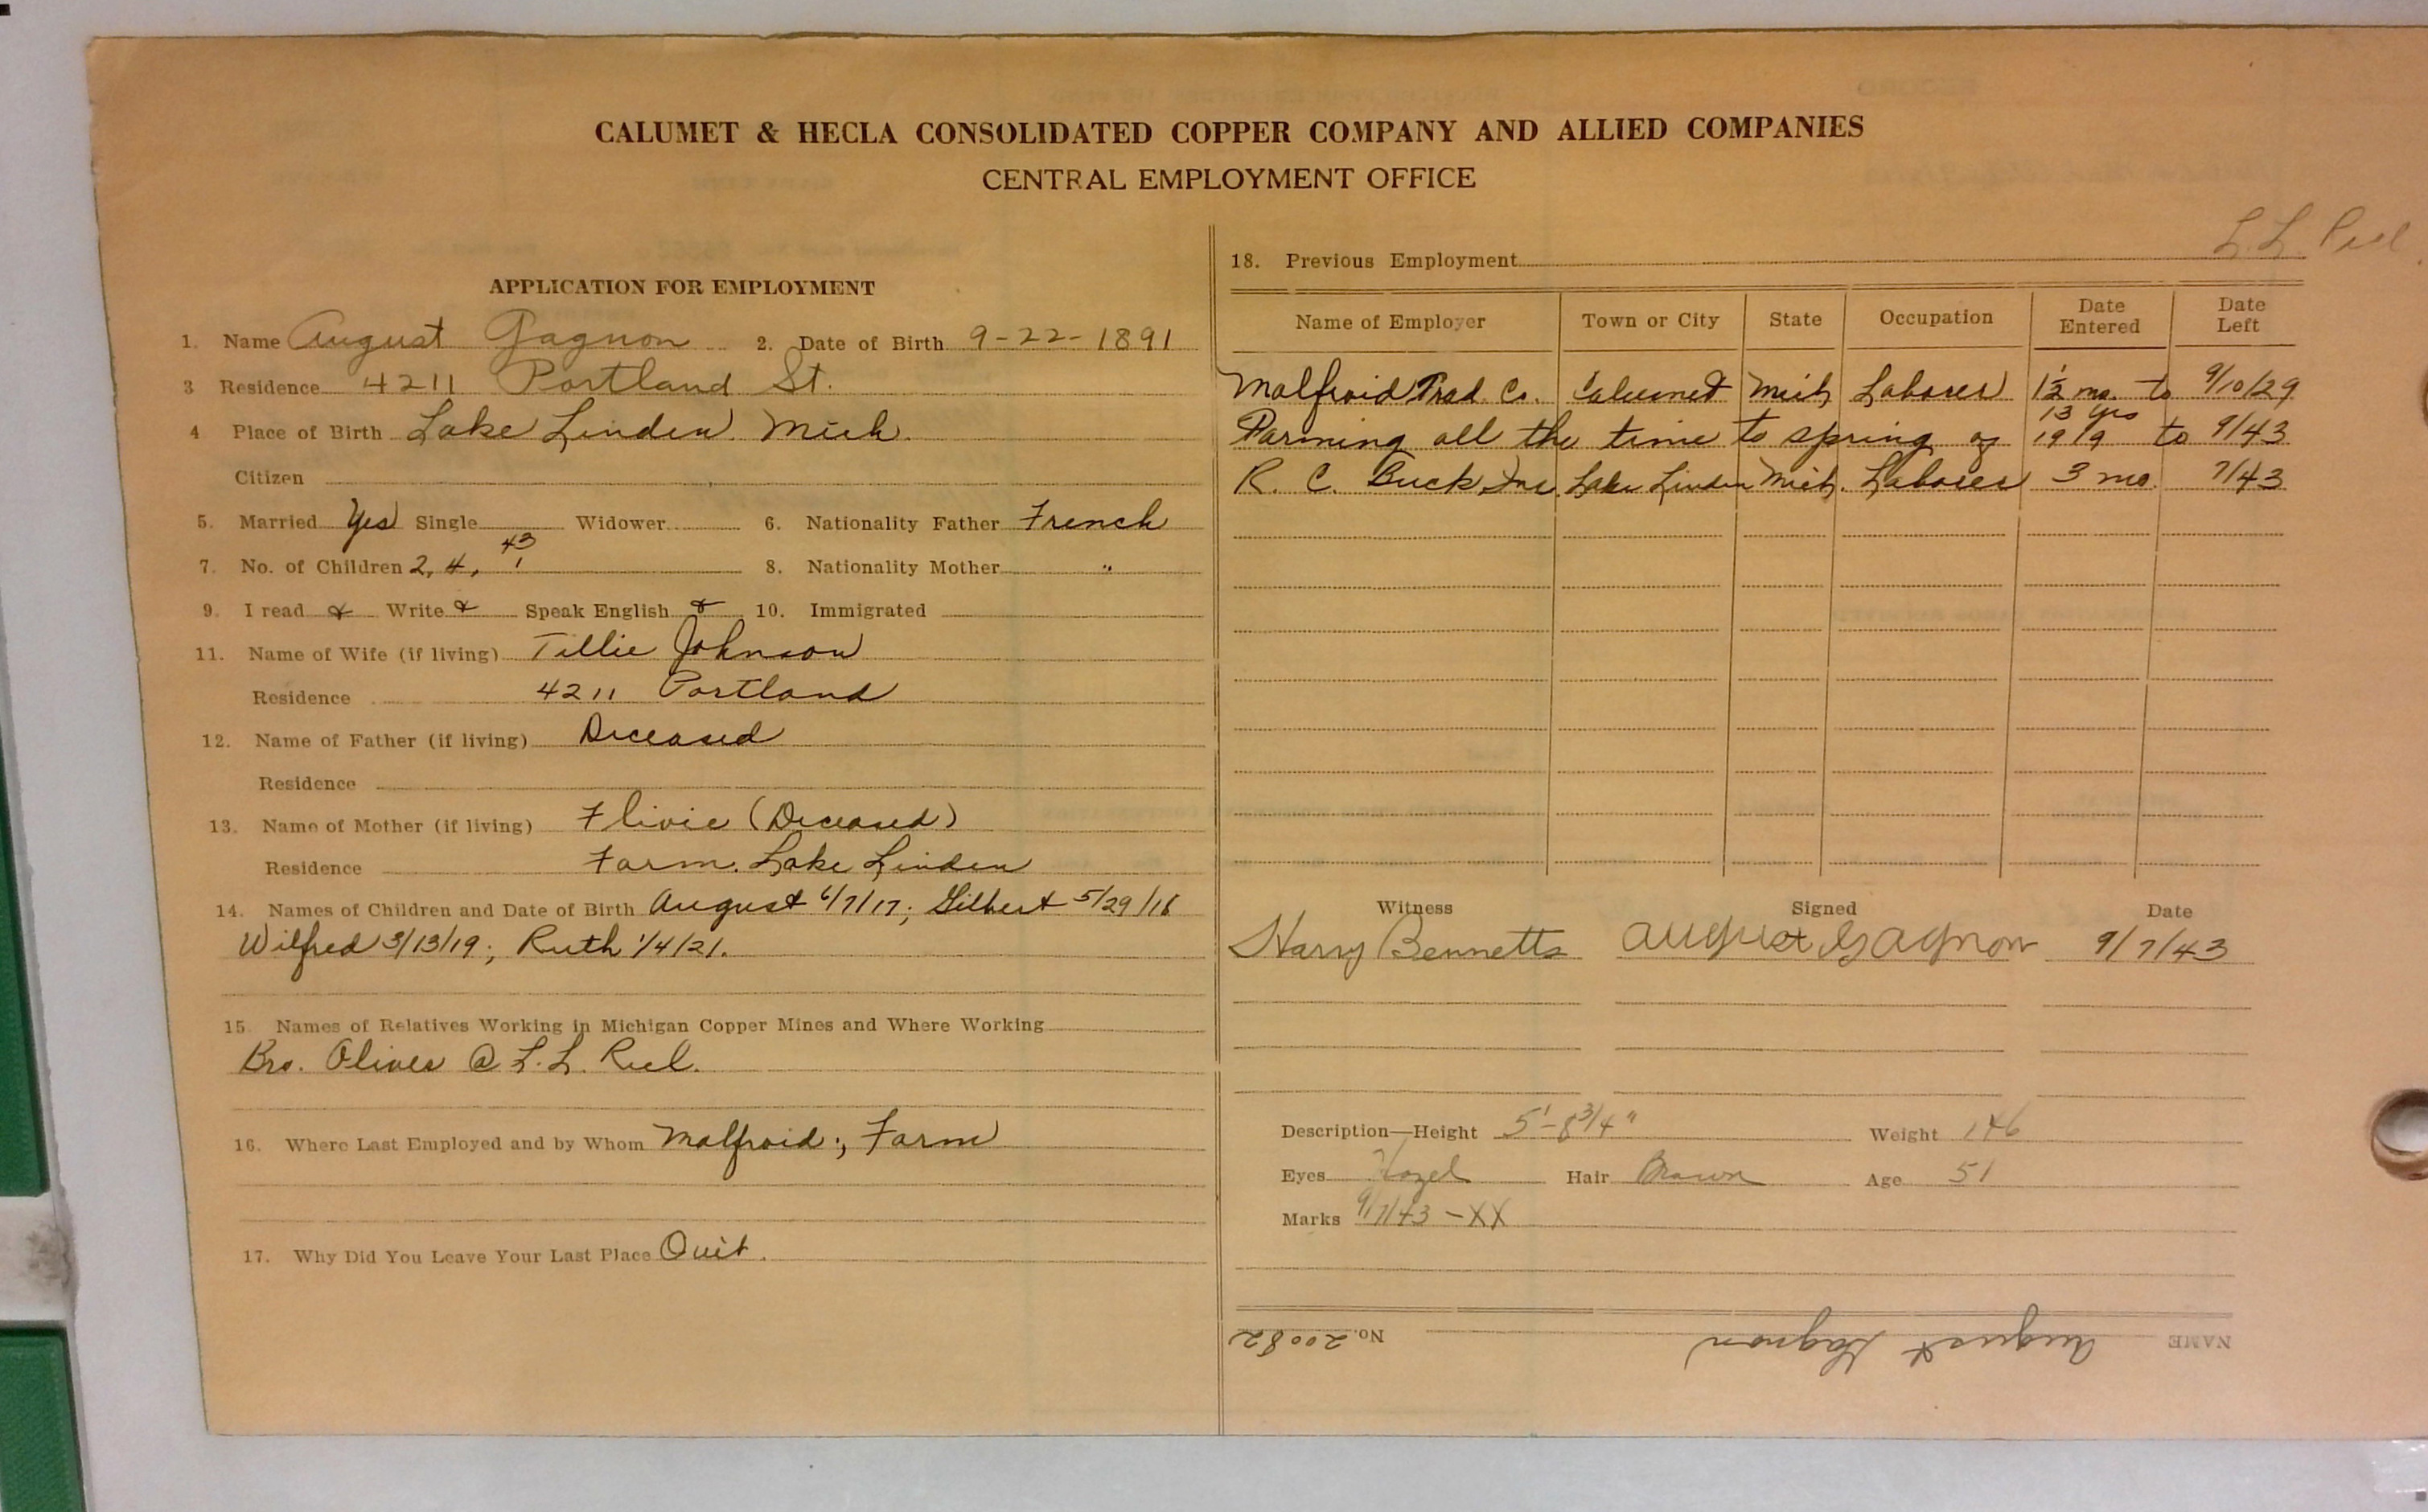 CALUMET & HECLA CONSOLIDATED COPPER COMPANY AND ALLIED COMPANIES
CENTRAL EMPLOYMENT OFFICE
APPLICATION FOR EMPLOYMENT
1. Name August Gagnon 2. Date of Birth 9-22-1891
3 Residence 4211 Portland St.
4 Place of Birth Lake Linden Mich.
Citizen
5. Married Yes Single Widower 6. Nationality Father French
7. No. of Children 2, 4, 43 1 8. Nationality Mother "
9. I read & Write & Speak English & 10. Immigrated
11. Name of Wife (if living) Tillie Johnson
Residence 4211 Portland
12. Name of Father (if living) Deceased
Residence
13. Name of Mother (if living) Flivie (Deceased)
Residence Farm. Lake Linden
14. Names of Children and Date of Birth August 6/7/17; Gilbert 5/29/16
Wilfred 3/13/19; Ruth 1/4/21.
15. Names of Relatives Working in Michigan Copper Mines and Where Working
Bro. Oliver @ L.L. Recl.
16. Where Last Employed and by Whom Malfroid; Farm
17. Why Did You Leave Your Last Place Quit.
L.L. Recl.
18. Previous Employment
Name of Employer Town or City State Occupation Date Entered Date Left
Malfroid Prod. Co. Calumet Mich Laborer 1½ mo. to 9/10/29
Farming all the time to spring of 13 yrs 1919 to 9/43
R. C. Buck Inc. Lake Linden Mich. Laborer 3 mo. 7/43
Witness Signed Date
Harry Bennetts August Gagnon 9/7/43
Description—Height 5'-8 3/4" Weight 146
Eyes Hazel Hair Brown Age 51
Marks 9/7/43 - XX
NAME August Gagnon No. 20082